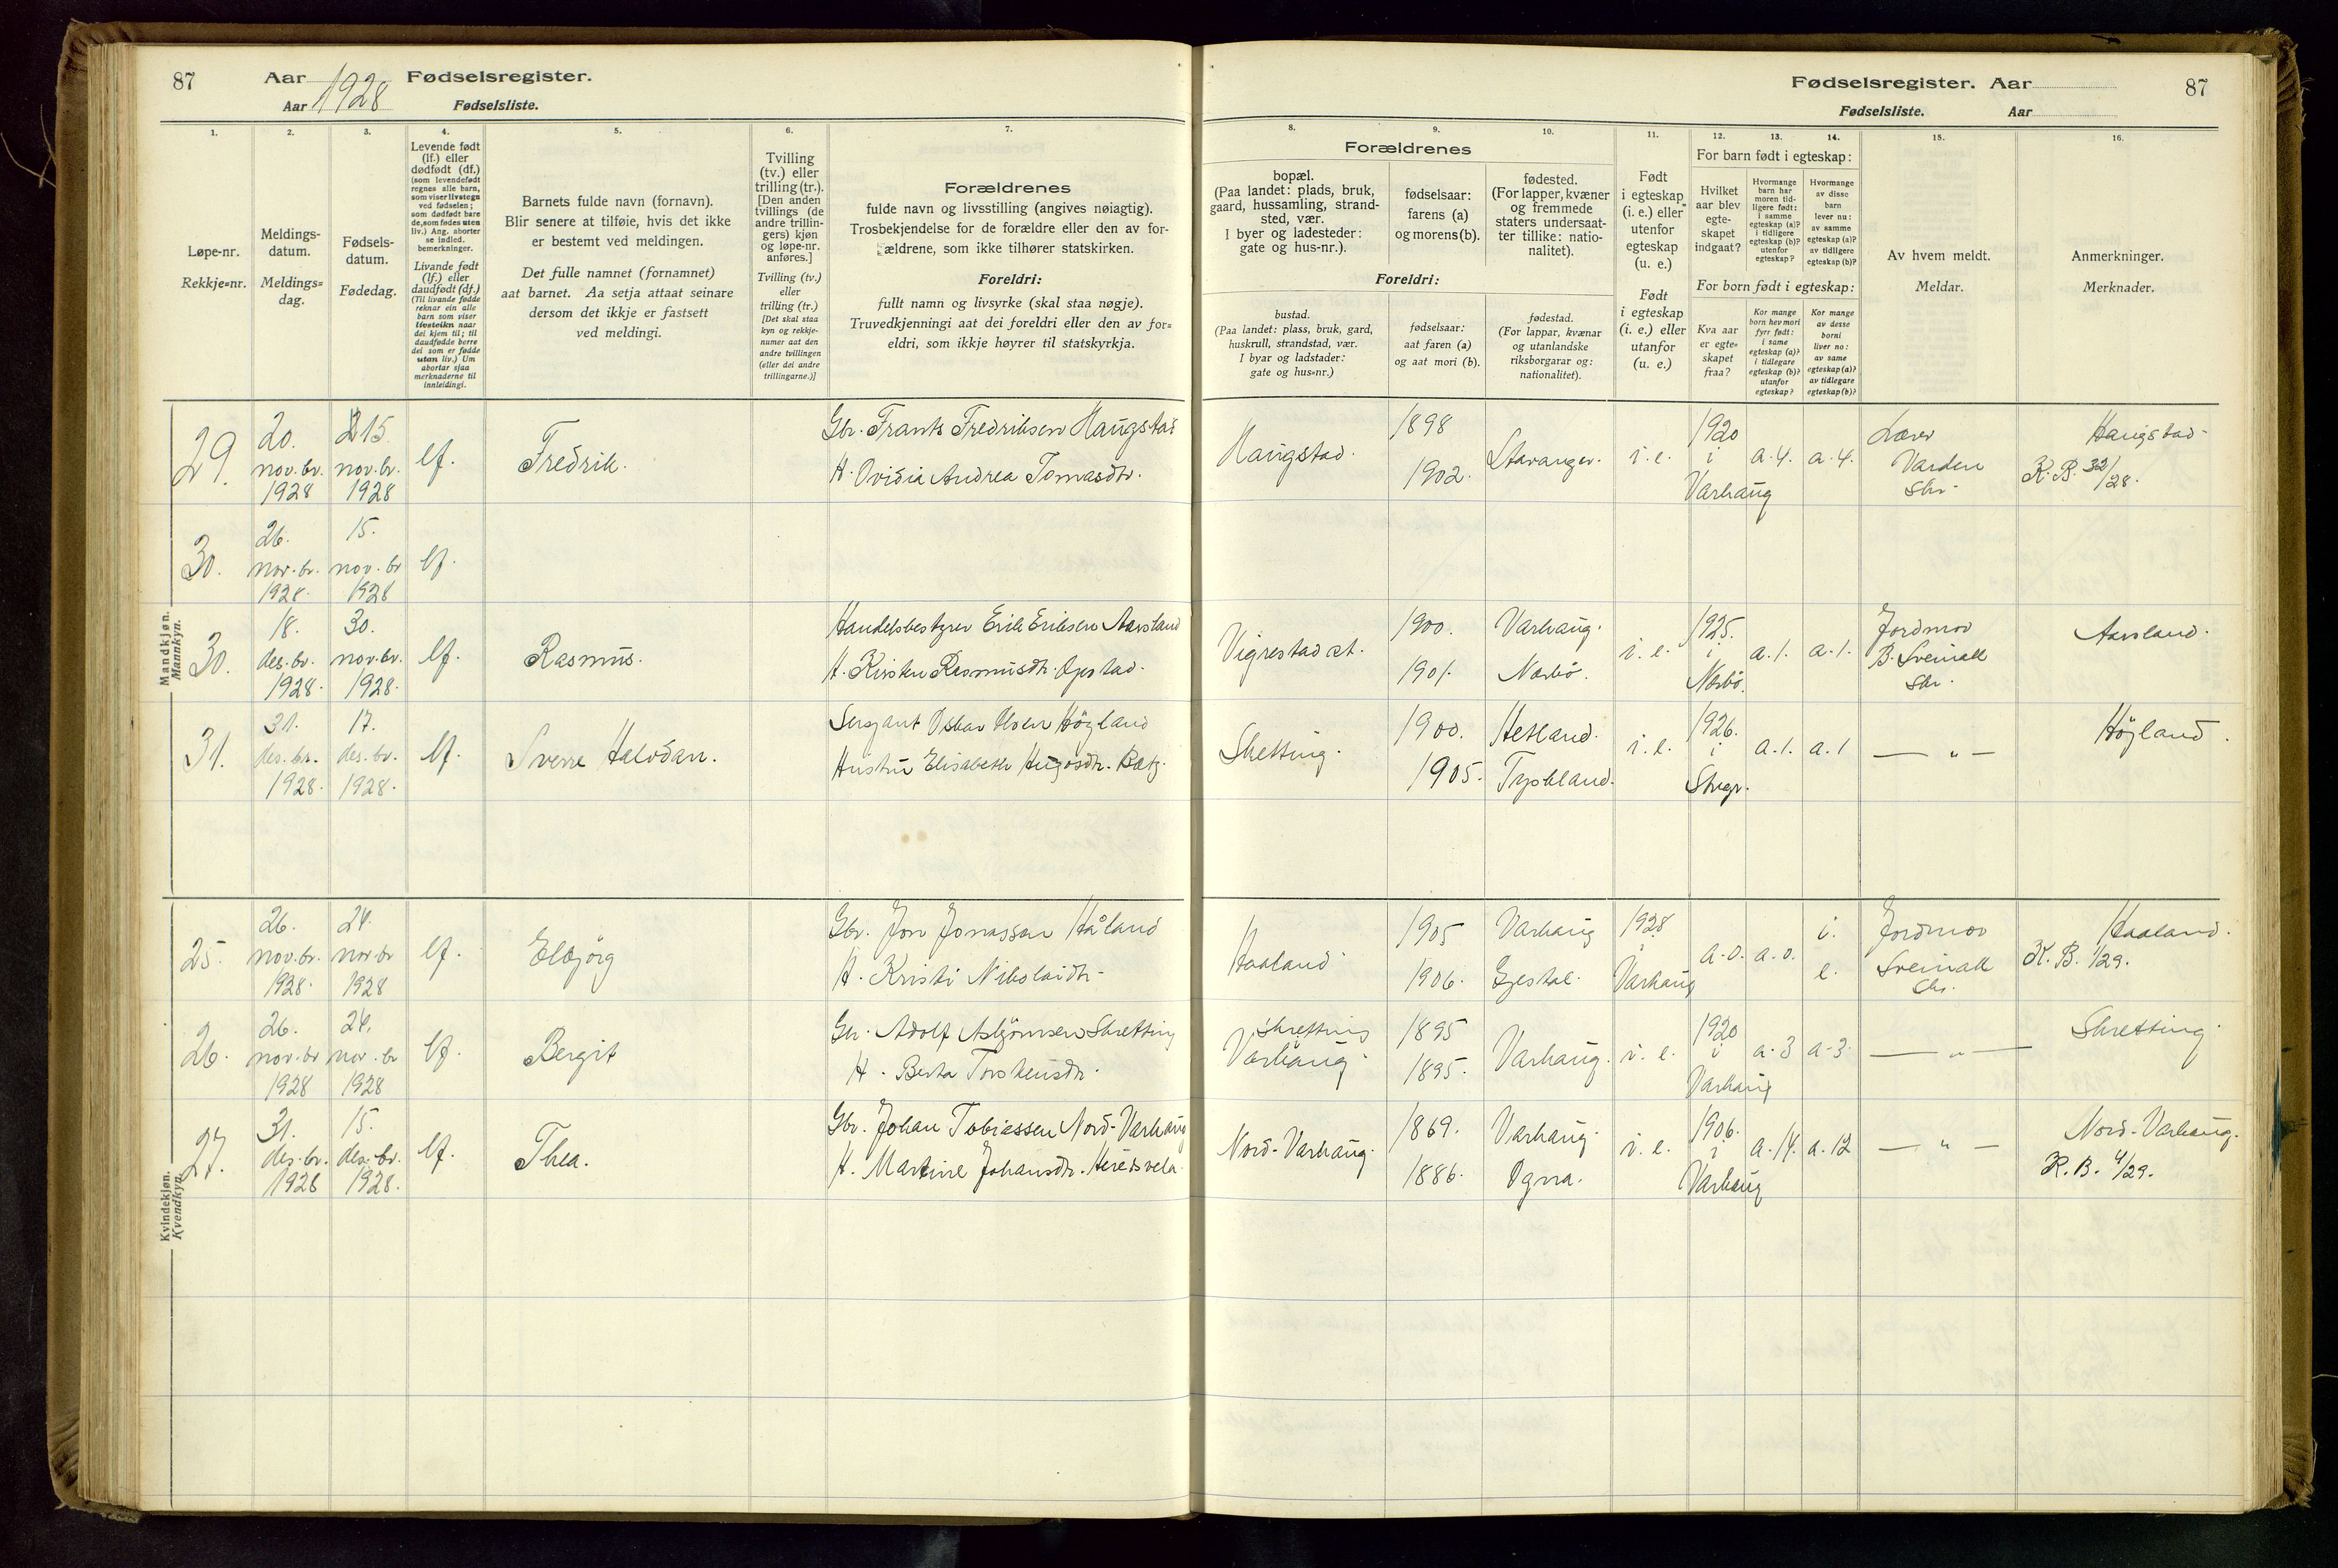 87 Aar 1928 Fødselsregister.
Aar Fødselsliste.
Fødselsregister. Aar 87
Fødselsliste. Aar
1. 2. 3. 4. 5. 6. 7. 8. 9. 10. 11. 12. 13. 14. 15. 16.
Løpe-nr.
Rekkje=nr.
Meldings-
datum.
Meldings=
dag.
Fødsels-
datum.
Fødedag.
Levende født
(lf.) eller
dødfødt (df.)
(som levendefødt
regnes alle barn,
som viser livstegn
ved fødselen;
som dødfødt bare
de, som fødes uten
liv.) Ang. aborter
se indled.
bemerkninger.
Livande født
(lf.) eller
daudfødt (df.)
(Til livande fødde
reknar ein alle
barn som viser
livsteikn naar
dei kjem til; til
daudfødde berre
dei som er fødde
utan liv.) Um
abortar sjaa
merknaderne til
innleidingi.
Barnets fulde navn (fornavn).
Blir senere at tilføie, hvis det ikke
er bestemt ved meldingen.
Det fulle namnet (fornamnet)
aat barnet. Aa setja attaat seinare
dersom det ikkje er fastsett
ved meldingi.
Tvilling
(tv.) eller
trilling (tr.).
[Den anden
tvillings (de
andre trillin-
gers) kjøn
og løpe-nr.
anføres.]
Tvilling (tv.)
eller
trilling (tr.)
[Det skal staa
kyn og rekkje-
numer aat den
andre tvillingen
(eller dei andre
trillingarne.)]
Forældrenes
fulde navn og livsstilling (angives nøiagtig).
Trosbekjendelse for de forældre eller den av for-
ældrene, som ikke tilhører statskirken.
Foreldri:
fullt namn og livsyrke (skal staa nøgje).
Truvedkjenningi aat dei foreldri eller den av for=
eldri, som ikkje høyrer til statskyrkja.
Forældrenes
bopæl.
(Paa landet: plads, bruk,
gaard, hussamling, strand-
sted, vær.
I byer og ladesteder:
gate og hus-nr.).
fødselsaar:
farens (a)
og morens (b).
fødested.
(For lapper, kvæner
og fremmede
staters undersaat-
ter tillike: natio-
nalitet).
Foreldri:
bustad.
(Paa landet: plass, bruk, gard,
huskrull, strandstad, vær.
I byar og ladstader:
gate og hus=nr.)
fødselsaar:
aat faren (a)
og aat mori (b).
fødestad.
(For lappar, kvænar
og utanlandske
riksborgarar og:
nationalitet).
Født
i egteskap
(i. e.) eller
utenfor
egteskap
(u. e.)
Født
i egteskap
(i. e.) eller
utanfor
(u. e.)
For barn født i egteskap:
Hvilket
aar blev
egte-
skapet
indgaat?
Hvormange
barn har
moren tid-
ligere født:
i samme
egteskap (a)?
i tidligere
egteskap (b)?
utenfor
egteskap?
Hvormange
av disse
barn
lever nu:
av samme
egteskap (a)?
av tidligere
egteskap (b)?
For born født i egteskap:
Kva aar
er egte=
skapet
fraa?
Kor mange
born hev mori
fyrr født:
i same
egteskap (a)?
i tidlegare
egteskap (b)?
utanfor
egteskap?
Kor mange
av desse
borni
liver no:
av same
egteskap (a)?
av tidlegare
egteskap (b)?
Av hvem meldt.
Meldar.
Anmerkninger.
Merknader.
Mandkjøn.
Mannkyn.
29. 20. nov.br. 1928 15. nov.br. 1928 lf. Fredrik. Gbr. Frants Fredriksen Haugstad
H. Ovidia Andrea Tomasdtr.
Haugstad. 1898 1902. Stavanger. i. e. 1920 i Varhaug a. 4. a. 4. Lærer Varden Skr. Haugstad K. B. 32/28.
30. 26. nov.br. 1928. 15. nov.br 1928 lf.
30. 18. des.br. 1928. 30. nov.br. 1928. lf. Rasmus. Handelsbestyrer Erik Eriksen Aarsland
H. Kirsten Rasmusdtr. Opstad.
Vigrestad st. 1900. 1901. Varhaug. Nærbö. i. e. 1925. i Nærbö. a. 1. a. 1. Jordmor B. Sveinall Skr. Aarsland.
31. 31. des.br. 1928. 17. des.br. 1928. lf. Sverre Halvdan. Sersjant Oskar Olsen Högland
Hustru Elisabeth Hugosdtr.
Skretting. 1900. 1905. Hetland. Tyskland. i. e. 1926. i Stvgr. a. 1. a. 1 — " — Högland.
Kvindekjøn.
Kvendkyn.
25. 26. nov.br. 1928. 24. nov.br 1928 lf. Elbjörg Gbr. Jon Jonassen Håland
H. Kristi Nikolaidtr.
Haaland 1905 1906. Varhaug Gjestal. 1928 i Varhaug a. 0. a. 0. i. e. Jordmor Sveinall Skr. Haaland. K. B. 1/29.
26. 26. nov.br 1928 24. nov.br 1928 lf. Bergit Gbr. Adolf Asbjörnsen Skretting
H. Berta Torkeisdtr.
Skretting Varhaug. 1895 1895. Varhaug. i. e. 1920 i Varhaug a. 3 a. 3. — " — Skretting.
27. 31. des.br. 1928 15. des.br. 1928. lf. Thea. Gbr. Johan Tobiassen Nord-Varhaug
H. Martine Johansdtr. Herredsvela
Nord-Varhaug. 1869. 1886. Varhaug. Ogna. i. e. 1906. i Varhaug a. 14. a. 12 — " — Nord-Varhaug. K. B. 4/29.